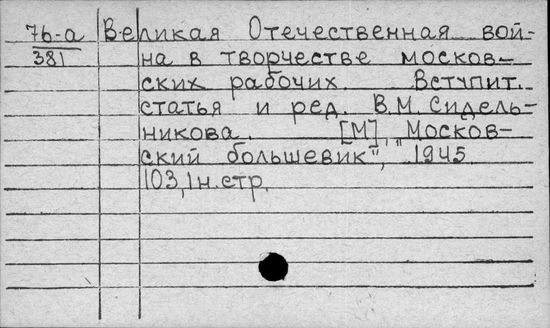 76-а Великая Отечественная вой-
381 на в творчестве москов-
ских рабочих. Вступит.
статья и ред. В.М. Сидель-
никова. [М], „Москов-
ский большевик", 1945.
103, 1 н. стр.